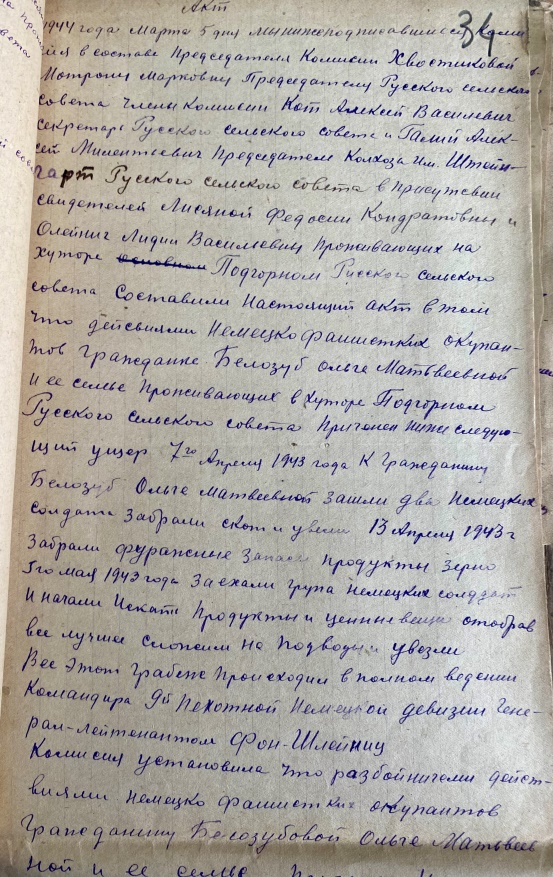 34
Акт
1944 года Марта 5 дня мы нижеподписавшиеся Коми
сия в составе Председателя Комисии Хвостиковой
Мотроны Марковны Председателя Русского сельского
совета члены Комисии Кот Алексей Василевич
секретарь Русского сельского совета и Галий Алек-
сей Милентьевич Председателем Колхоза им. Штейн-
гарт Русского сельского совета в присутсвии
свидетелей Лисяной Федосии Кондратовны и
Олейниг Лидии Василиевны Проживающих на
хуторе Подгорном Русского сельского
совета Составили Настоящий акт в том
что дейсвиями Немецко фашистких окупан-
тов Гражданке Белозуб Ольге Матьвеевной
и ее семье Проживающих в хуторе Подгорном
Русского сельского совета Причинен Ниже следую-
щий ущерб 7го Апреля 1943 года К Гражданину
Белозуб Ольге Матвеевной Зашли два Немецких
солдата Забрали скот и увели 13 Апреля 1943 г
Забрали фуражные Запасы продукты Зерно
5го мая 1943 года Заехали група Немецких солддат
и начали Искать Продукты и ценные вещи отобрав
все лучшее сложили на подводы и увезли
Вес Этот Грабеж Происходил в полном ведении
Командира 9й Пехотной Немецкой девизии Гене-
рал-лейтенантом Фон-Шлейниц
Комисия установила что разбойничеми дейст-
виями немецко фашистких окупантов
Гражданину Белозубовой Ольге Матьвеев
ной и ее семье